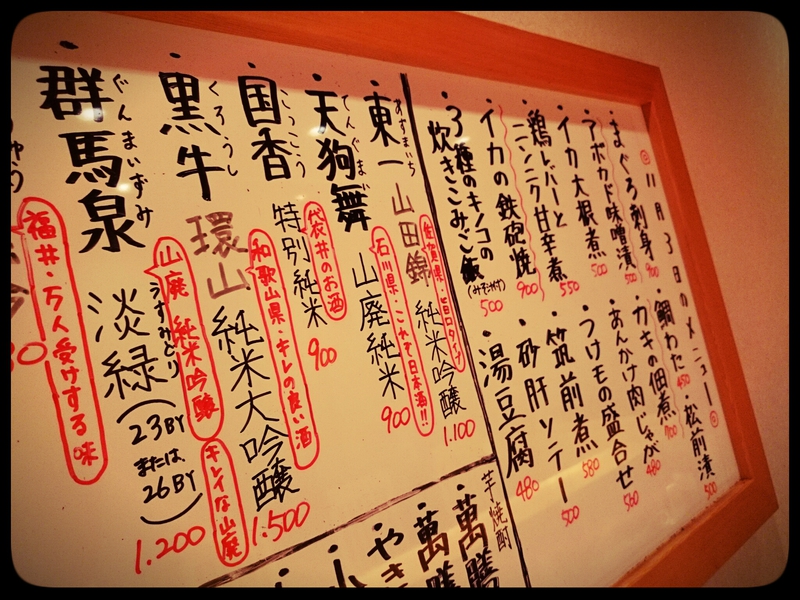 ◎11月3日のメニュー◎
・まぐろ刺身 900
・アボカド味噌漬 500
・イカ大根煮 500
・鶏レバーと
ニンニク甘辛煮 550
・イカの鉄砲焼 900
・3種のキノコの
炊きこみご飯 (みそ汁付) 500
・鯛わた 450
・松前漬 500
・カキの佃煮 700
・あんかけ肉じゃが 480
・つけもの盛合せ 560
・筑前煮 580
・砂肝ソテー 500
・湯豆腐 480
・東一 あずまいち
山田錦 純米吟醸 1.100
佐賀県・旨口タイプ
・天狗舞 てんぐまい
山廃純米 900
石川県・これぞ日本酒!!
・国香 こっこう
特別純米 900
袋井のお酒
・黒牛 くろうし
環山 純米大吟醸 1.500
和歌山県・キレの良い酒
・群馬泉 ぐんまいずみ
淡緑 うすみどり
(23BY
または
26BY)
1.200
山廃 純米吟醸
キレイな山廃
福井・万人受けする味
芋焼酎
・萬膳
・萬膳
・やき